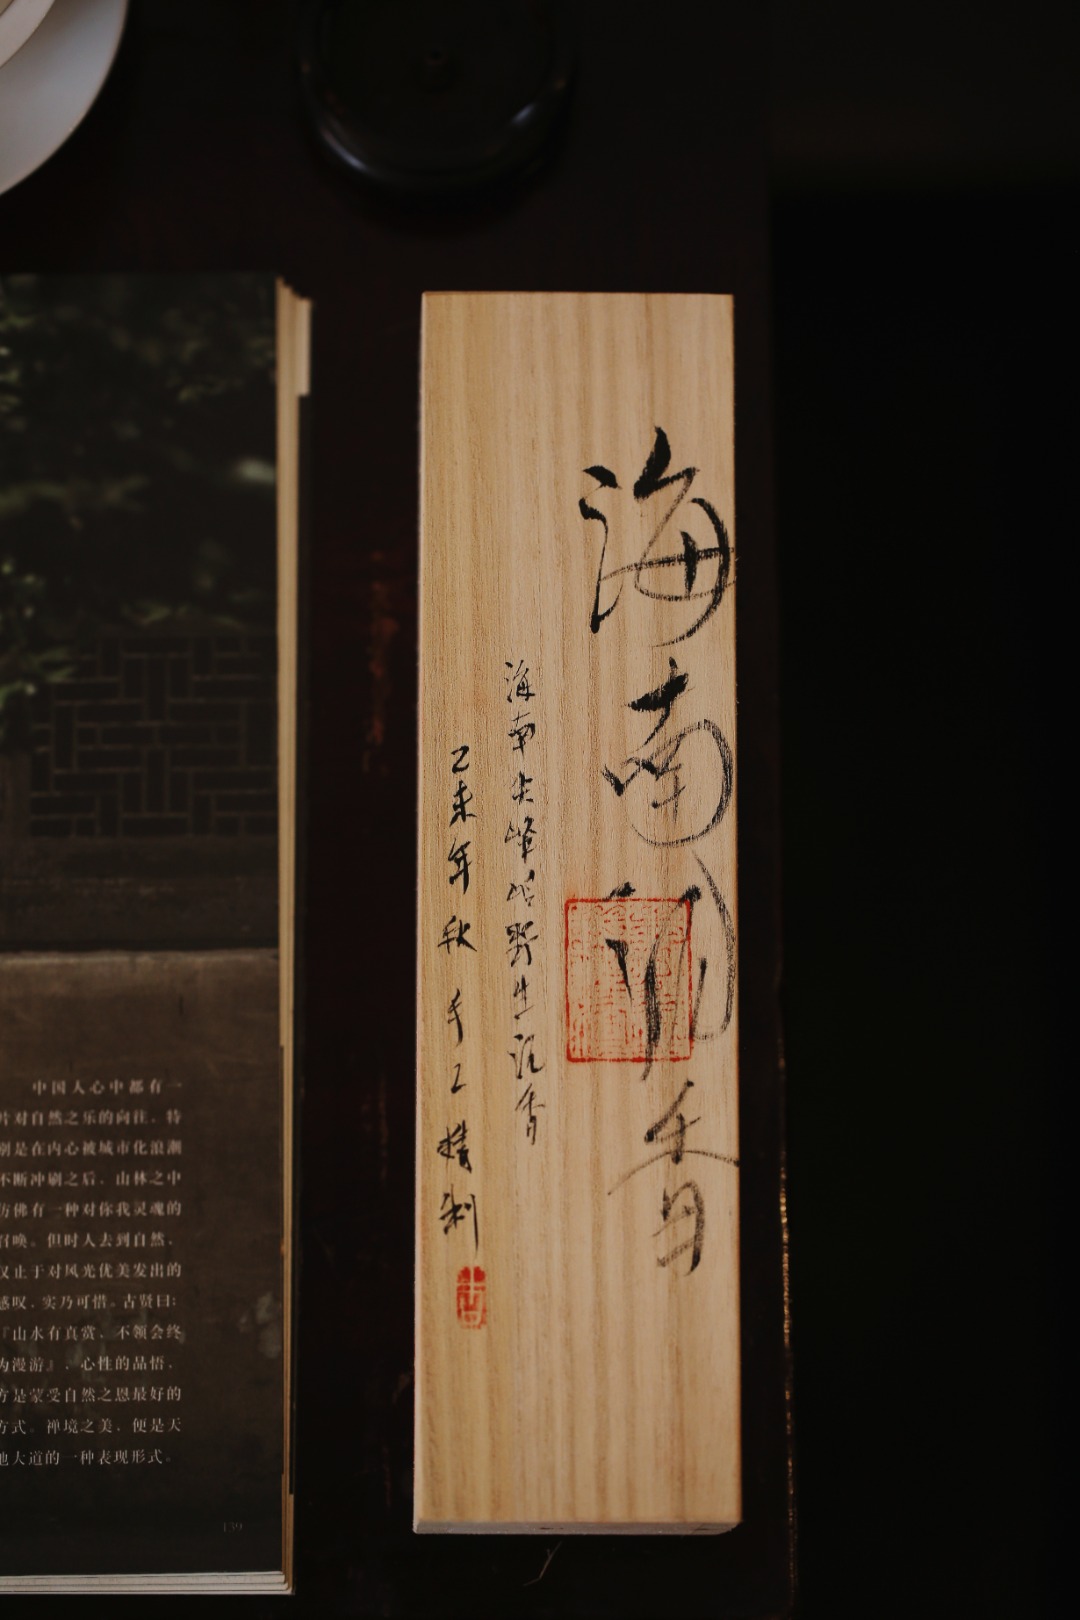 海南 香
海南尖峰岭野生沉香
乙未年秋 手工精制
中国人心中都有一
片对自然之乐的向往。特
别是在内心被城市化浪潮
不断冲刷之后，山林之中
仿佛有一种对你我灵魂的
召唤。但时人去到自然，
仅止于对风光优美发出的
感叹，实乃可惜。古贤曰：
『山水有真赏，不领会终
为漫游』，心性的品悟，
方是蒙受自然之恩最好的
方式。禅境之美，便是天
地大道的一种表现形式。
139